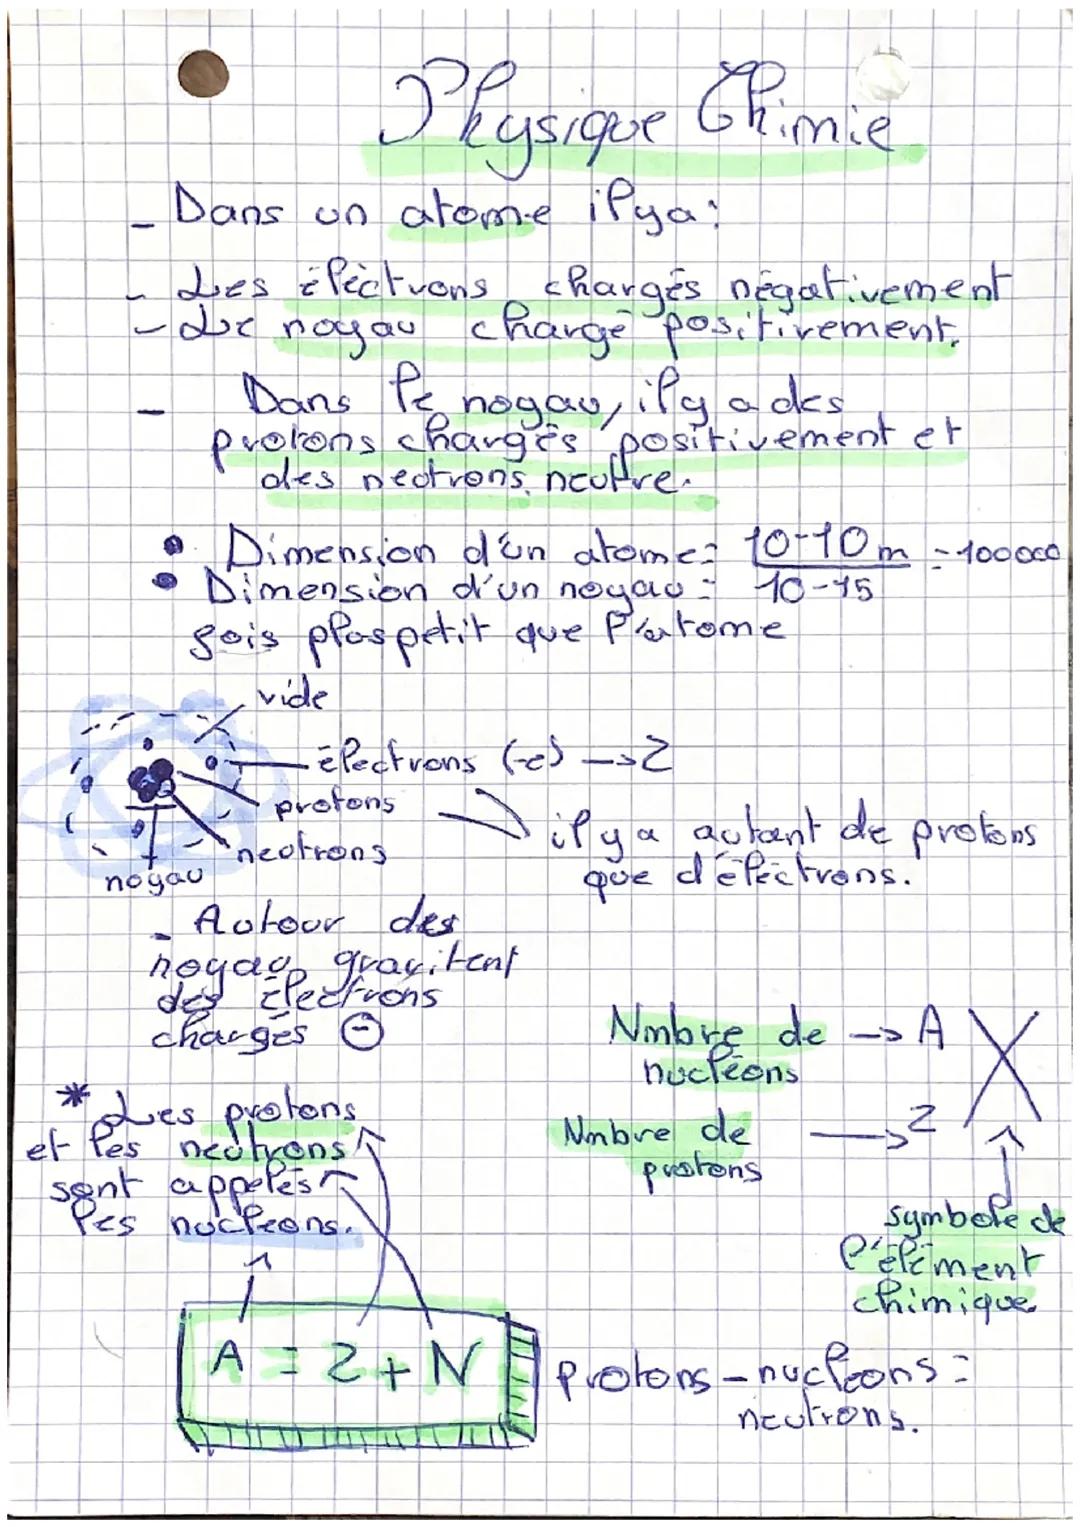 Physique Chimie
- Dans un atome il y a :
- Les électrons chargés négativement
- Le noyau chargé positivement.
- Dans le noyau, il y a des
protons chargés positivement et
des neutrons neutre.
• Dimension d'un atome = 10-10 m = 100000
• Dimension d'un noyau = 10-15
fois plus petit que l'atome
vide
électrons (-e) -> Z
protons
neutrons
noyau
il y a autant de protons
que d'électrons.
- Autour des
noyau gravitent
des électrons
chargés ⊖
Nmbre de -> A X
nucléons
Nmbre de -> Z
protons
symbole de
l'élément
chimique
* Les protons
et les neutrons
sont appelés
les nucléons.
A = Z + N
protons - nucléons =
neutrons.